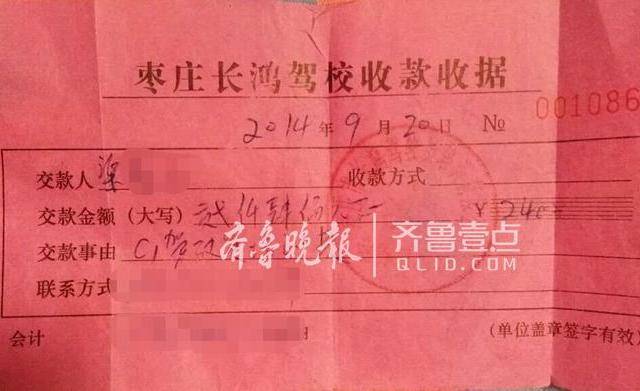 枣庄长鸿驾校收款收据
2014年9月20日 № 001086
交款人 梁 收款方式
交款金额（大写）贰仟肆佰 ¥240
交款事由 C1驾
齐鲁晚报 齐鲁壹点
QLID.COM
联系方式
会计 （单位盖章签字有效）